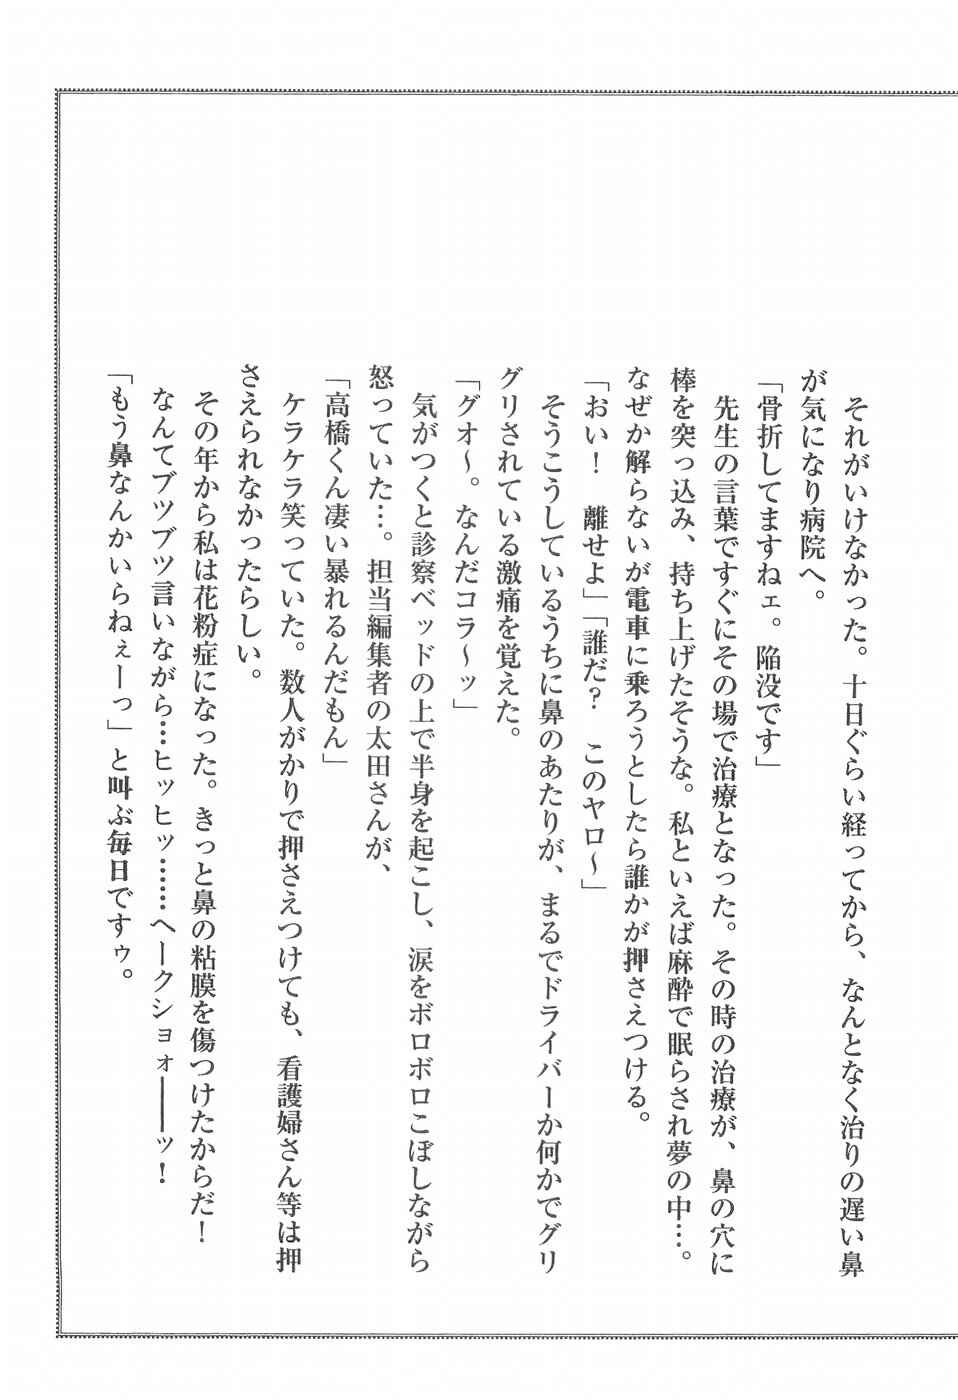 それがいけなかった。十日ぐらい経ってから、なんとなく治りの遅い鼻
が気になり病院へ。
「骨折してますねェ。陥没です」
先生の言葉ですぐにその場で治療となった。その時の治療が、鼻の穴に
棒を突っ込み、持ち上げたそうな。私といえば麻酔で眠らされ夢の中…。
なぜか解らないが電車に乗ろうとしたら誰かが押さえつける。
「おい！　離せよ」「誰だ？　このヤロ〜」
そうこうしているうちに鼻のあたりが、まるでドライバーか何かでグリ
グリされている激痛を覚えた。
「グオ〜。なんだコラ〜ッ」
気がつくと診察ベッドの上で半身を起こし、涙をボロボロこぼしながら
怒っていた…。担当編集者の太田さんが、
「高橋くん凄い暴れるんだもん」
ケラケラ笑っていた。数人がかりで押さえつけても、看護婦さん等は押
さえられなかったらしい。
その年から私は花粉症になった。きっと鼻の粘膜を傷つけたからだ！
なんてブツブツ言いながら…ヒッヒッ……ヘークショォ━━ッ！
「もう鼻なんかいらねぇーっ」と叫ぶ毎日ですゥ。